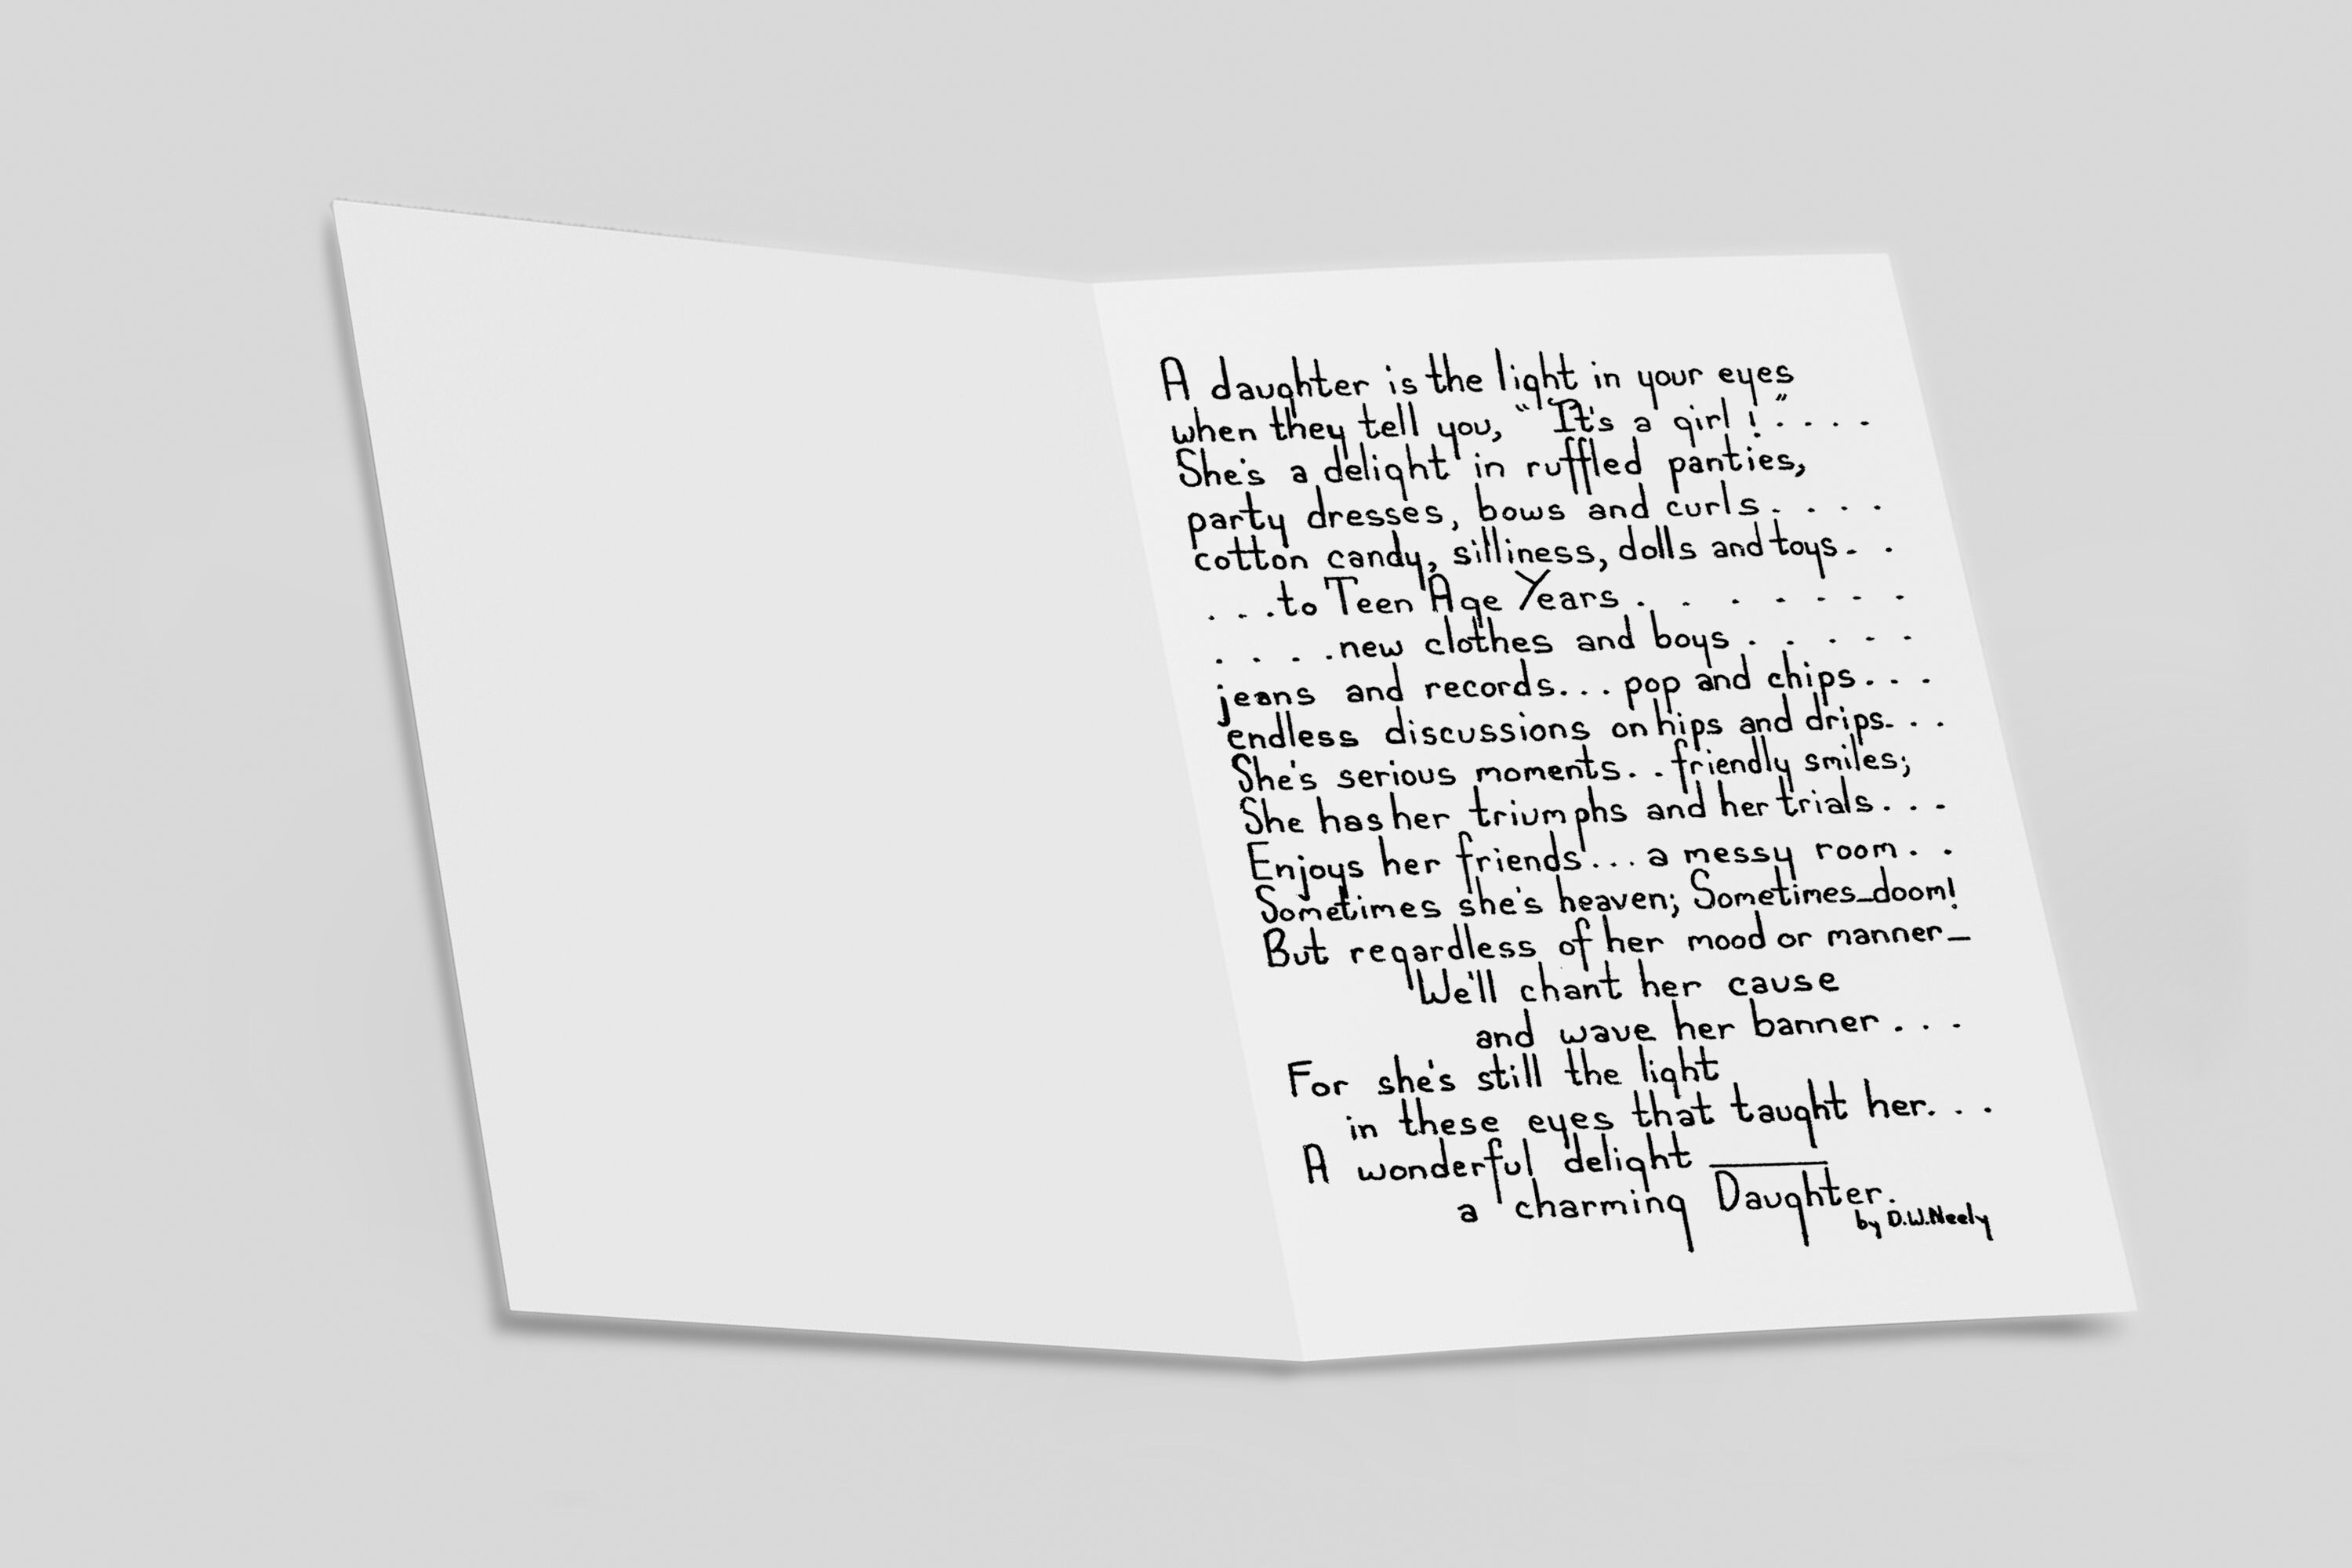 A daughter is the light in your eyes
when they tell you, "It's a girl!" . . . .
She's a delight in ruffled panties,
party dresses, bows and curls . . . .
cotton candy, silliness, dolls and toys . .
. . . to Teen Age Years . . . . . . .
. . . . new clothes and boys . . . . .
jeans and records... pop and chips . . .
endless discussions on hips and drips. . .
She's serious moments. . friendly smiles;
She has her triumphs and her trials . . .
Enjoys her friends ... a messy room . .
Sometimes she's heaven; Sometimes_doom!
But regardless of her mood or manner_
We'll chant her cause
and wave her banner . . .
For she's still the light
in these eyes that taught her. . .
A wonderful delight ____
a charming Daughter.
by D.W.Neely